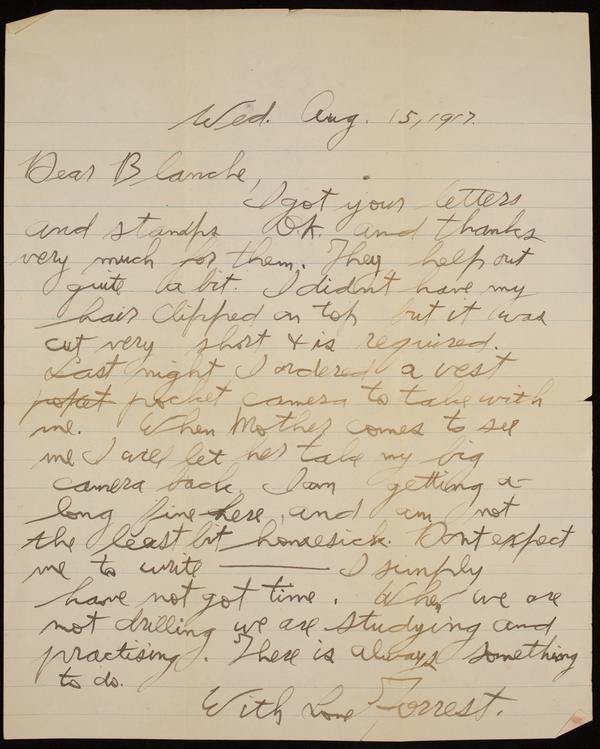 Wed. Aug. 15, 1917.
Dear Blanche,
I got your letters
and stamps O.K. and thanks
very much for them. They help out
quite a bit. I didn't have my
hair clipped on top but it was
cut very short & is required.
Last night I ordered a vest
poket pocket camera to take with
me. When Mother comes to see
me I will let her take my big
camera back. I am getting a-
long fine here, and am not
the least bit homesick. Dont expect
me to write — I simply
have not got time. When we are
not drilling we are studying and
practising. There is always something
to do.
With Love Forrest.